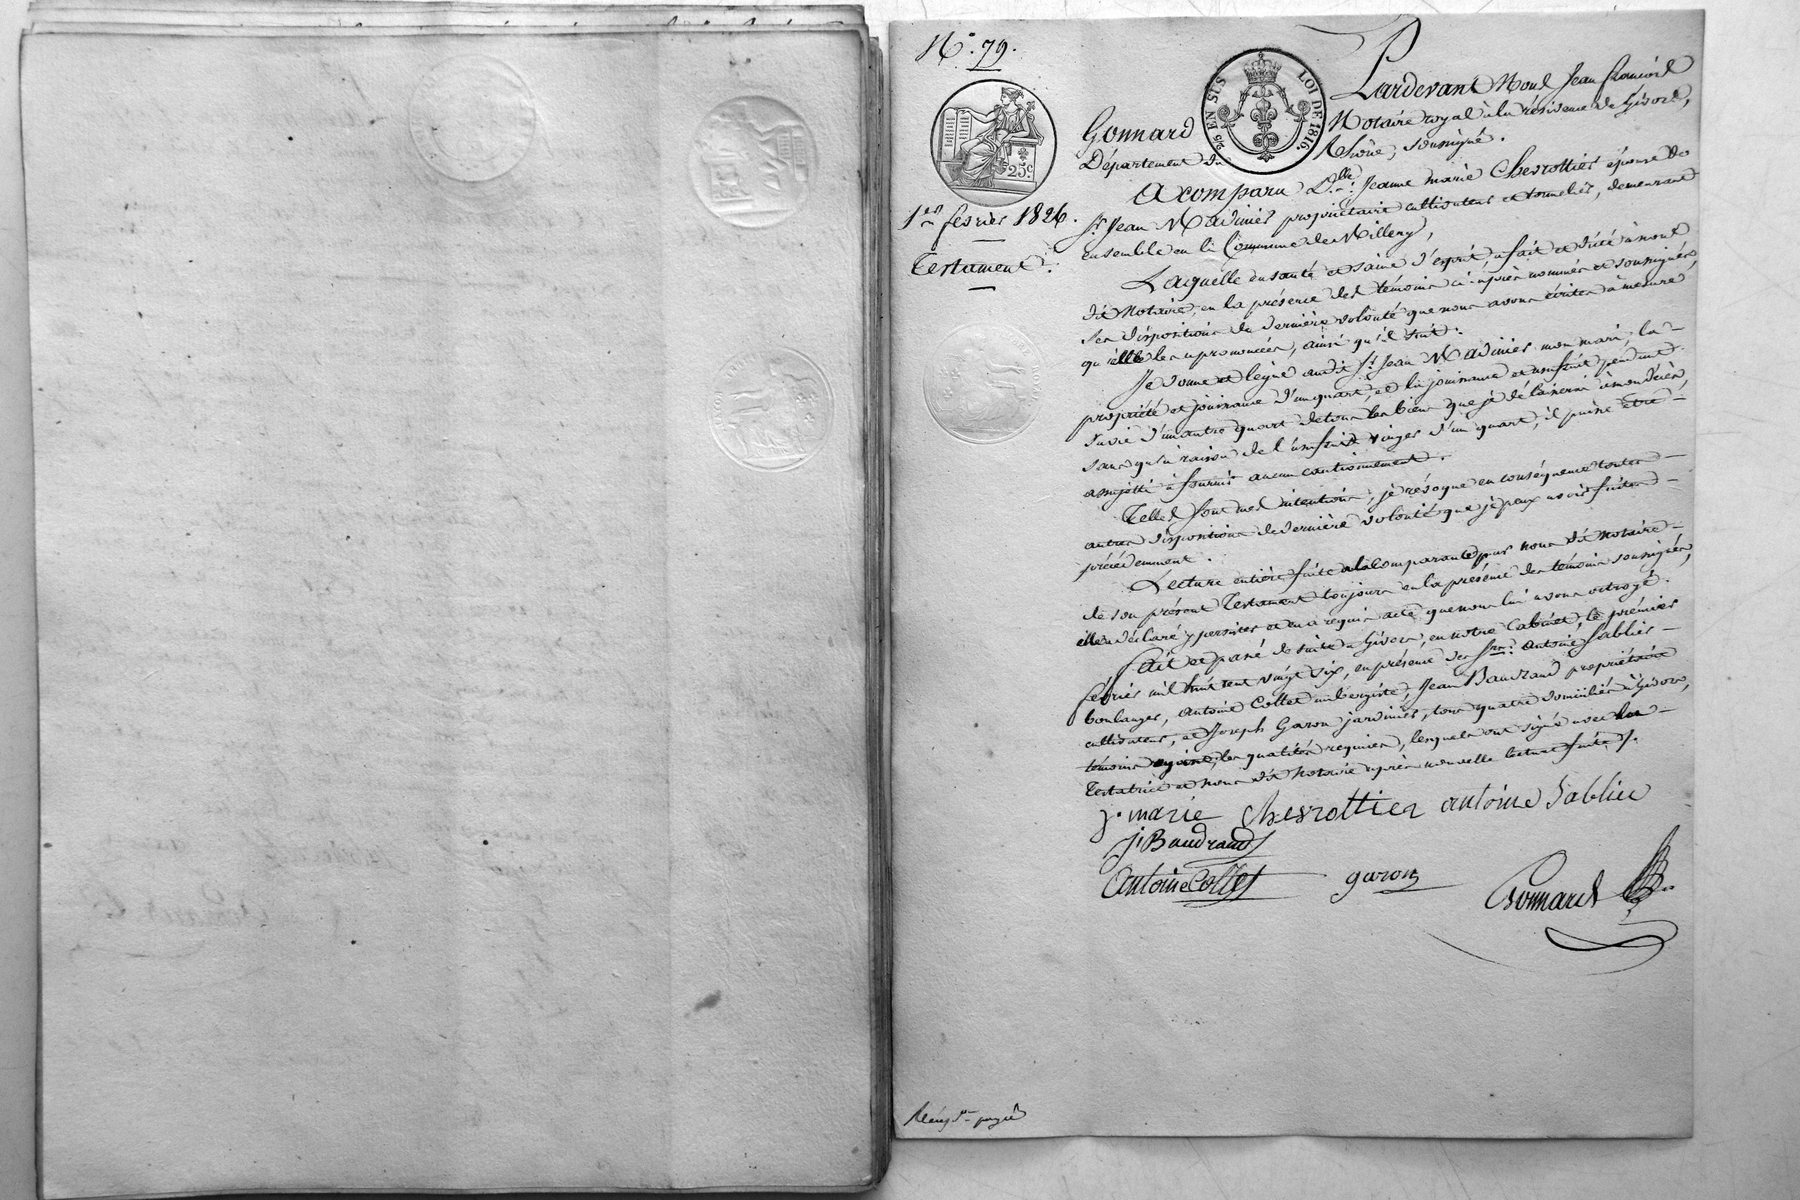 N.° 79.
25 c
1er février 1826.
Testament.
EN SUS
LOI DE 1816.
Pardevant Nous Jean François
Gonnard Notaire royal à la résidence de Givors,
Département du Rhône, soussigné.
A comparu D.lle Jeanne marie Chevrottier épouse de
Sr Jean Madinier propriétaire cultivateur et tonnelier, demeurant
ensemble en la Commune de Millery,
Laquelle en santé et saine d'esprit, a fait et dicté à nous
dit Notaire, en la présence des témoins ci-après nommés et soussignés,
ses dispositions de dernière volonté que nous avons écrites à mesure
qu'elle les a prononcées, ainsi qu'il suit:
Je donne et lègue audit Sr Jean Madinier mon mari, la
propriété et jouissance d'un quart, et la jouissance et usufruit pendant
sa vie d'un autre quart de tous les biens que je délaisserai à mon décès,
sans qu'à raison de l'usufruit viager d'un quart, il puisse être
assujetti à fournir aucun cautionnement.
Telles sont mes intentions, je révoque en conséquence toutes
autres dispositions de dernière volonté que je peux avoir faites
précédemment.
Lecture entière faite à la Comparante par nous dit Notaire
de son présent Testament toujours en la présence des témoins soussignés,
elle a déclaré y persister et en a requis acte que nous lui avons octroyé.
Fait et passé de suite à Givors, en notre Cabinet, le premier
février mil huit cent vingt six, en présence des Srs Antoine Sablier
boulanger, Antoine Collet aubergiste, Jean Baudrand propriétaire
cultivateur, et Joseph Garon jardinier, tous quatre domiciliés à Givors,
témoins ayant les qualités requises, lesquels ont signé avec la
Testatrice et nous dit Notaire après nouvelle lecture faite.
j. marie Chevrottier antoine Sablier
J. Baudrand
Antoine Collet garon Gonnard